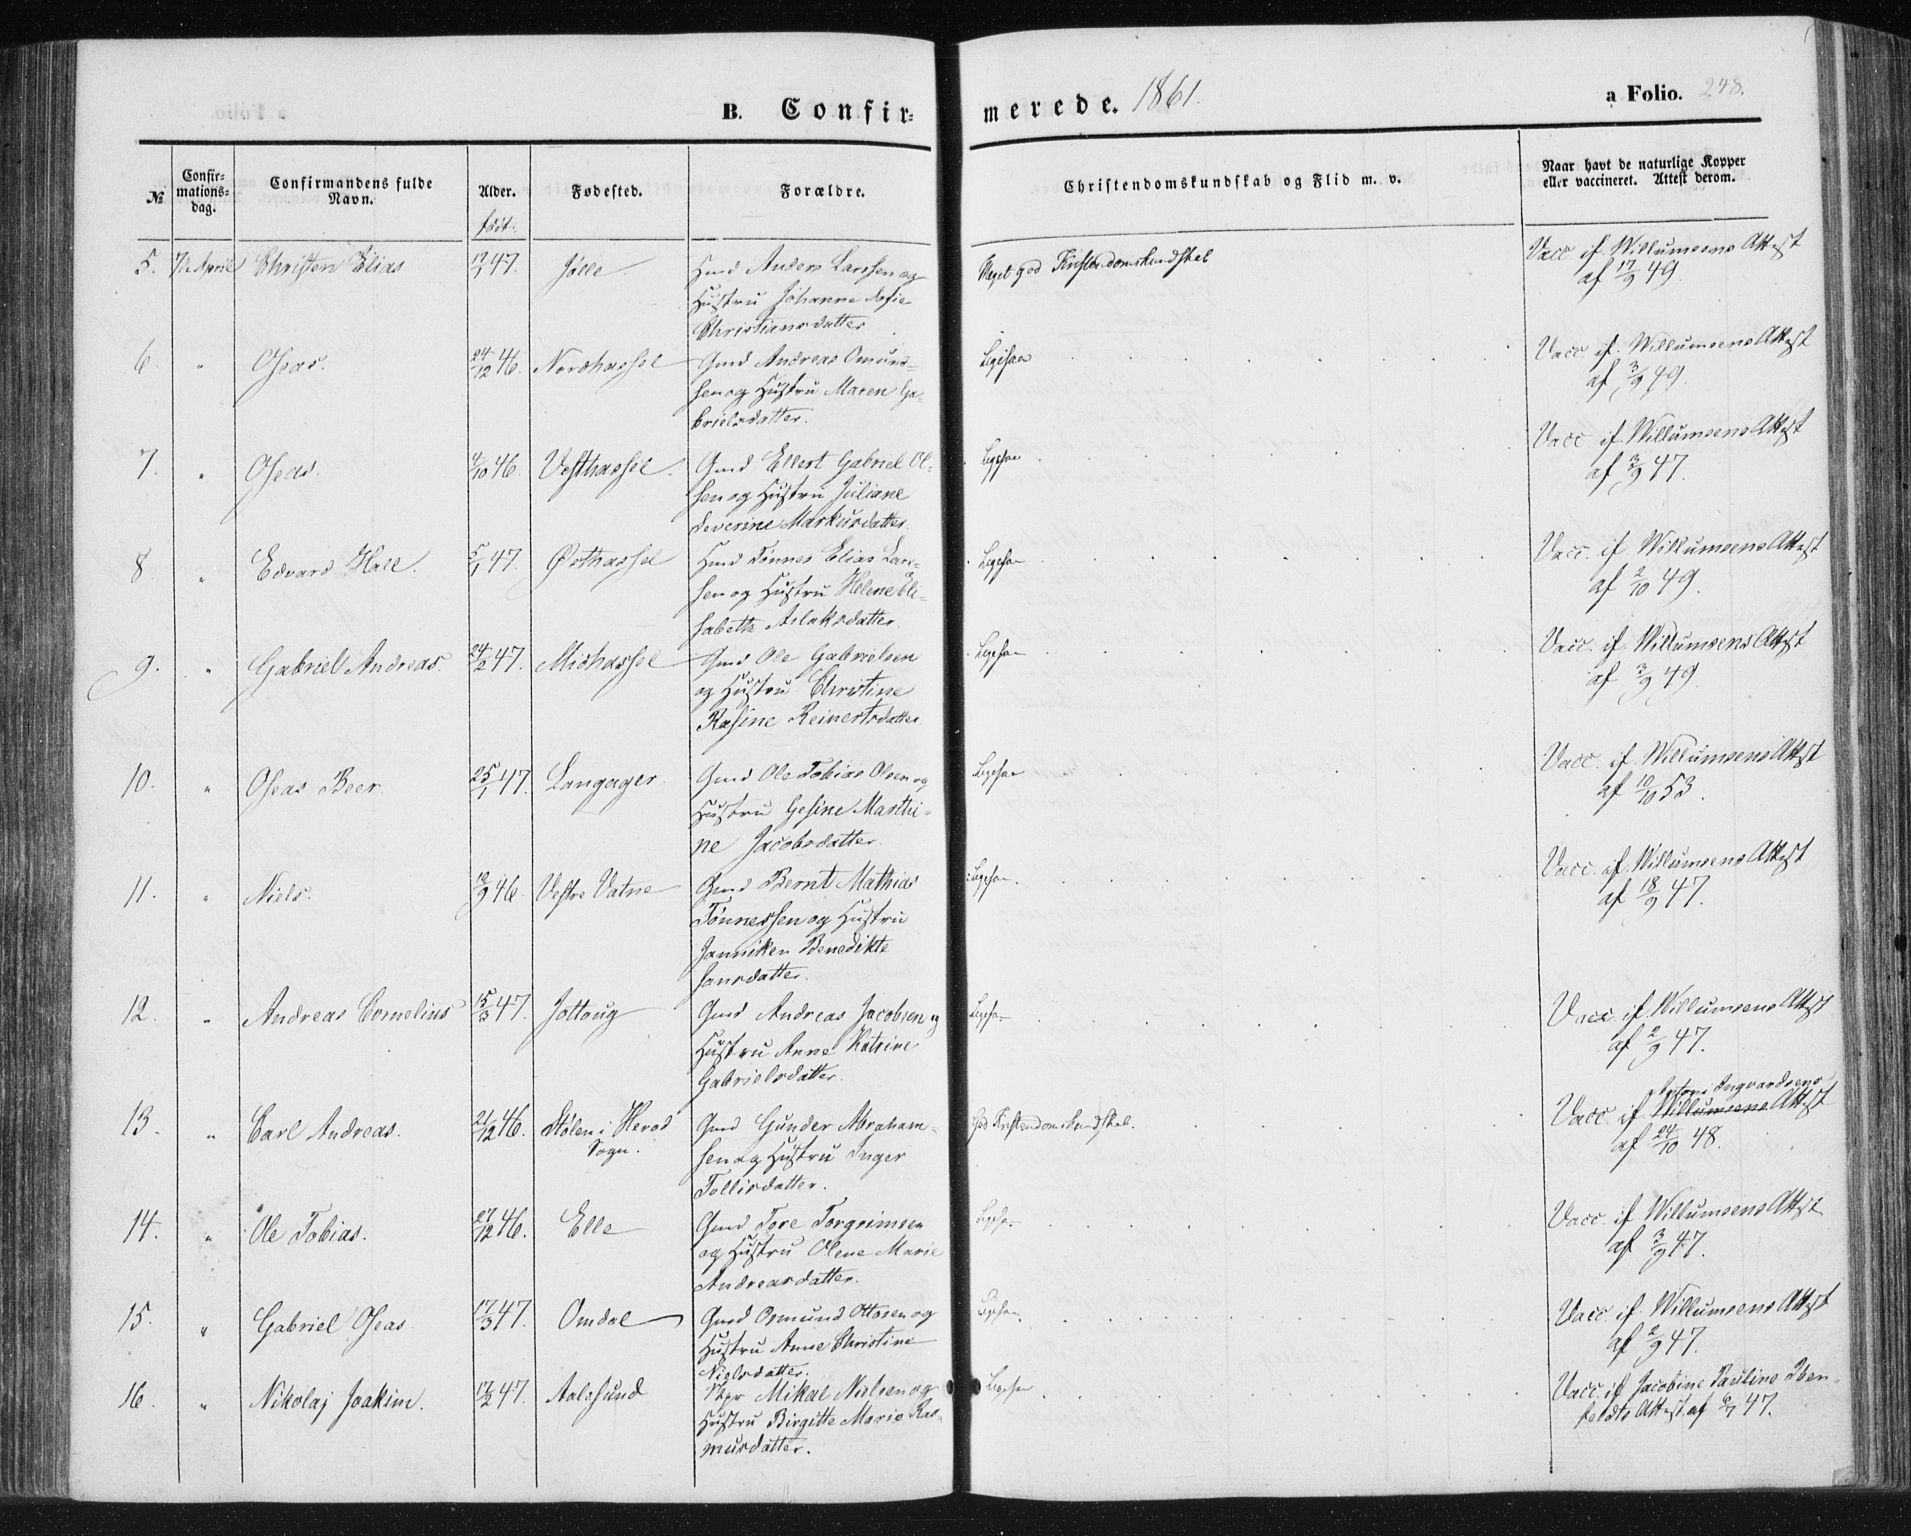 B. Confir-
merede. 1861.
a Folio. 248.
№
Confir-
mations-
dag.
Confirmandens fulde
Navn.
Alder.
født.
Fødested.
Forældre.
Christendomskundskab og Flid m. v.
Naar havt de naturlige Kopper
eller vaccineret. Attest derom.
5. 7/4 April Christen Elias 12/1 47. Jølle Hmd Anders Larssen og
Hustru Johanne Sofie
Christiansdatter
Meget god Kristendomskundskab
Vacc if Willumsens Attest
af 17/9 49.
6. " Oseas. 24/12 46. Nordhassel Gmd Andreas Omunds-
sen og Hustru Maren Ga-
brielsdatter.
Ligesaa
Vacc. if. Willumsens Attest
af 3/9 49.
7. " Oseas. 4/10 46. Vesthassel Gmd Ellert Gabriel Ol-
sen og Hustru Juliane
Severine Markusdatter.
Ligesaa
Vacc if. Willumsens Attest
af 3/9 47.
8. " Edvard Hall. 5/1 47. Østhassel Hmd Tønnes Elias Lars-
sen og Hustru Helene Eli-
sabeth Aslaksdatter.
Ligesaa
Vacc. if Willumsens Attest
af 2/10 49.
9. " Gabriel Andreas. 24/2 47. Midhassel Gmd Ole Gabrielsen
og Hustru Christine
Rasine Reinertsdatter
Ligesaa
Vacc. if. Willumsens Attest
af 3/9 49.
10. " Oseas Beer. 25/1 47. Langager. Gmd Ole Tobias Olsen og
Hustru Gesine Marthi-
ne Jacobsdatter.
Ligesaa
Vacc. if Willumsens Attest
af 10/10 53.
11. " Niels. 12/9 46. Vestre Vatne Gmd Bernt Mathias
Tønnessen og Hustru
Janniken Benedikte
Jansdatter.
Ligesaa.
Vacc. if. Willumsens Attest
af 18/9 47.
12. " Andreas Cornelius 15/3 47. Jottoug Gmd Andreas Jacobsen og
Hustru Anne Katrine
Gabrielsdatter.
Ligesaa
Vacc if Willumsens Attest
af 2/9 47.
13. " Carl Andreas. 21/12 46. Stølen i Herad
Sogn.
Gmd Gunder Abraham-
sen og Hustru Inger
Tollisdatter.
God Kristendomskundskab.
Ingvardsens
Vacc. if Willumsens Attest
af 24/10 48.
14. " Ole Tobias. 27/12 46. Elle Gmd Tore Torgrimsen
og Hustru Olene Marie
Andreasdatter.
Ligesaa
Vacc. if Willumsens Attest
af 3/9 47.
15. " Gabriel Oseas. 17/3 47. Omdal Gmd Osmund Ottosen og
Hustru Anne Christine
Nielsdatter.
Ligesaa.
Vacc. if. Willumsens Attest
af 2/9 47.
16. " Nikolaj Joakim. 12/2 47. Aalesund Skpr Mikal Nielsen og
Hustru Birgitte Marie Ras-
musdatter.
Ligesaa
Vacc. if Jacobine Pauline Iben-
feldts Attest af 6/7 47.